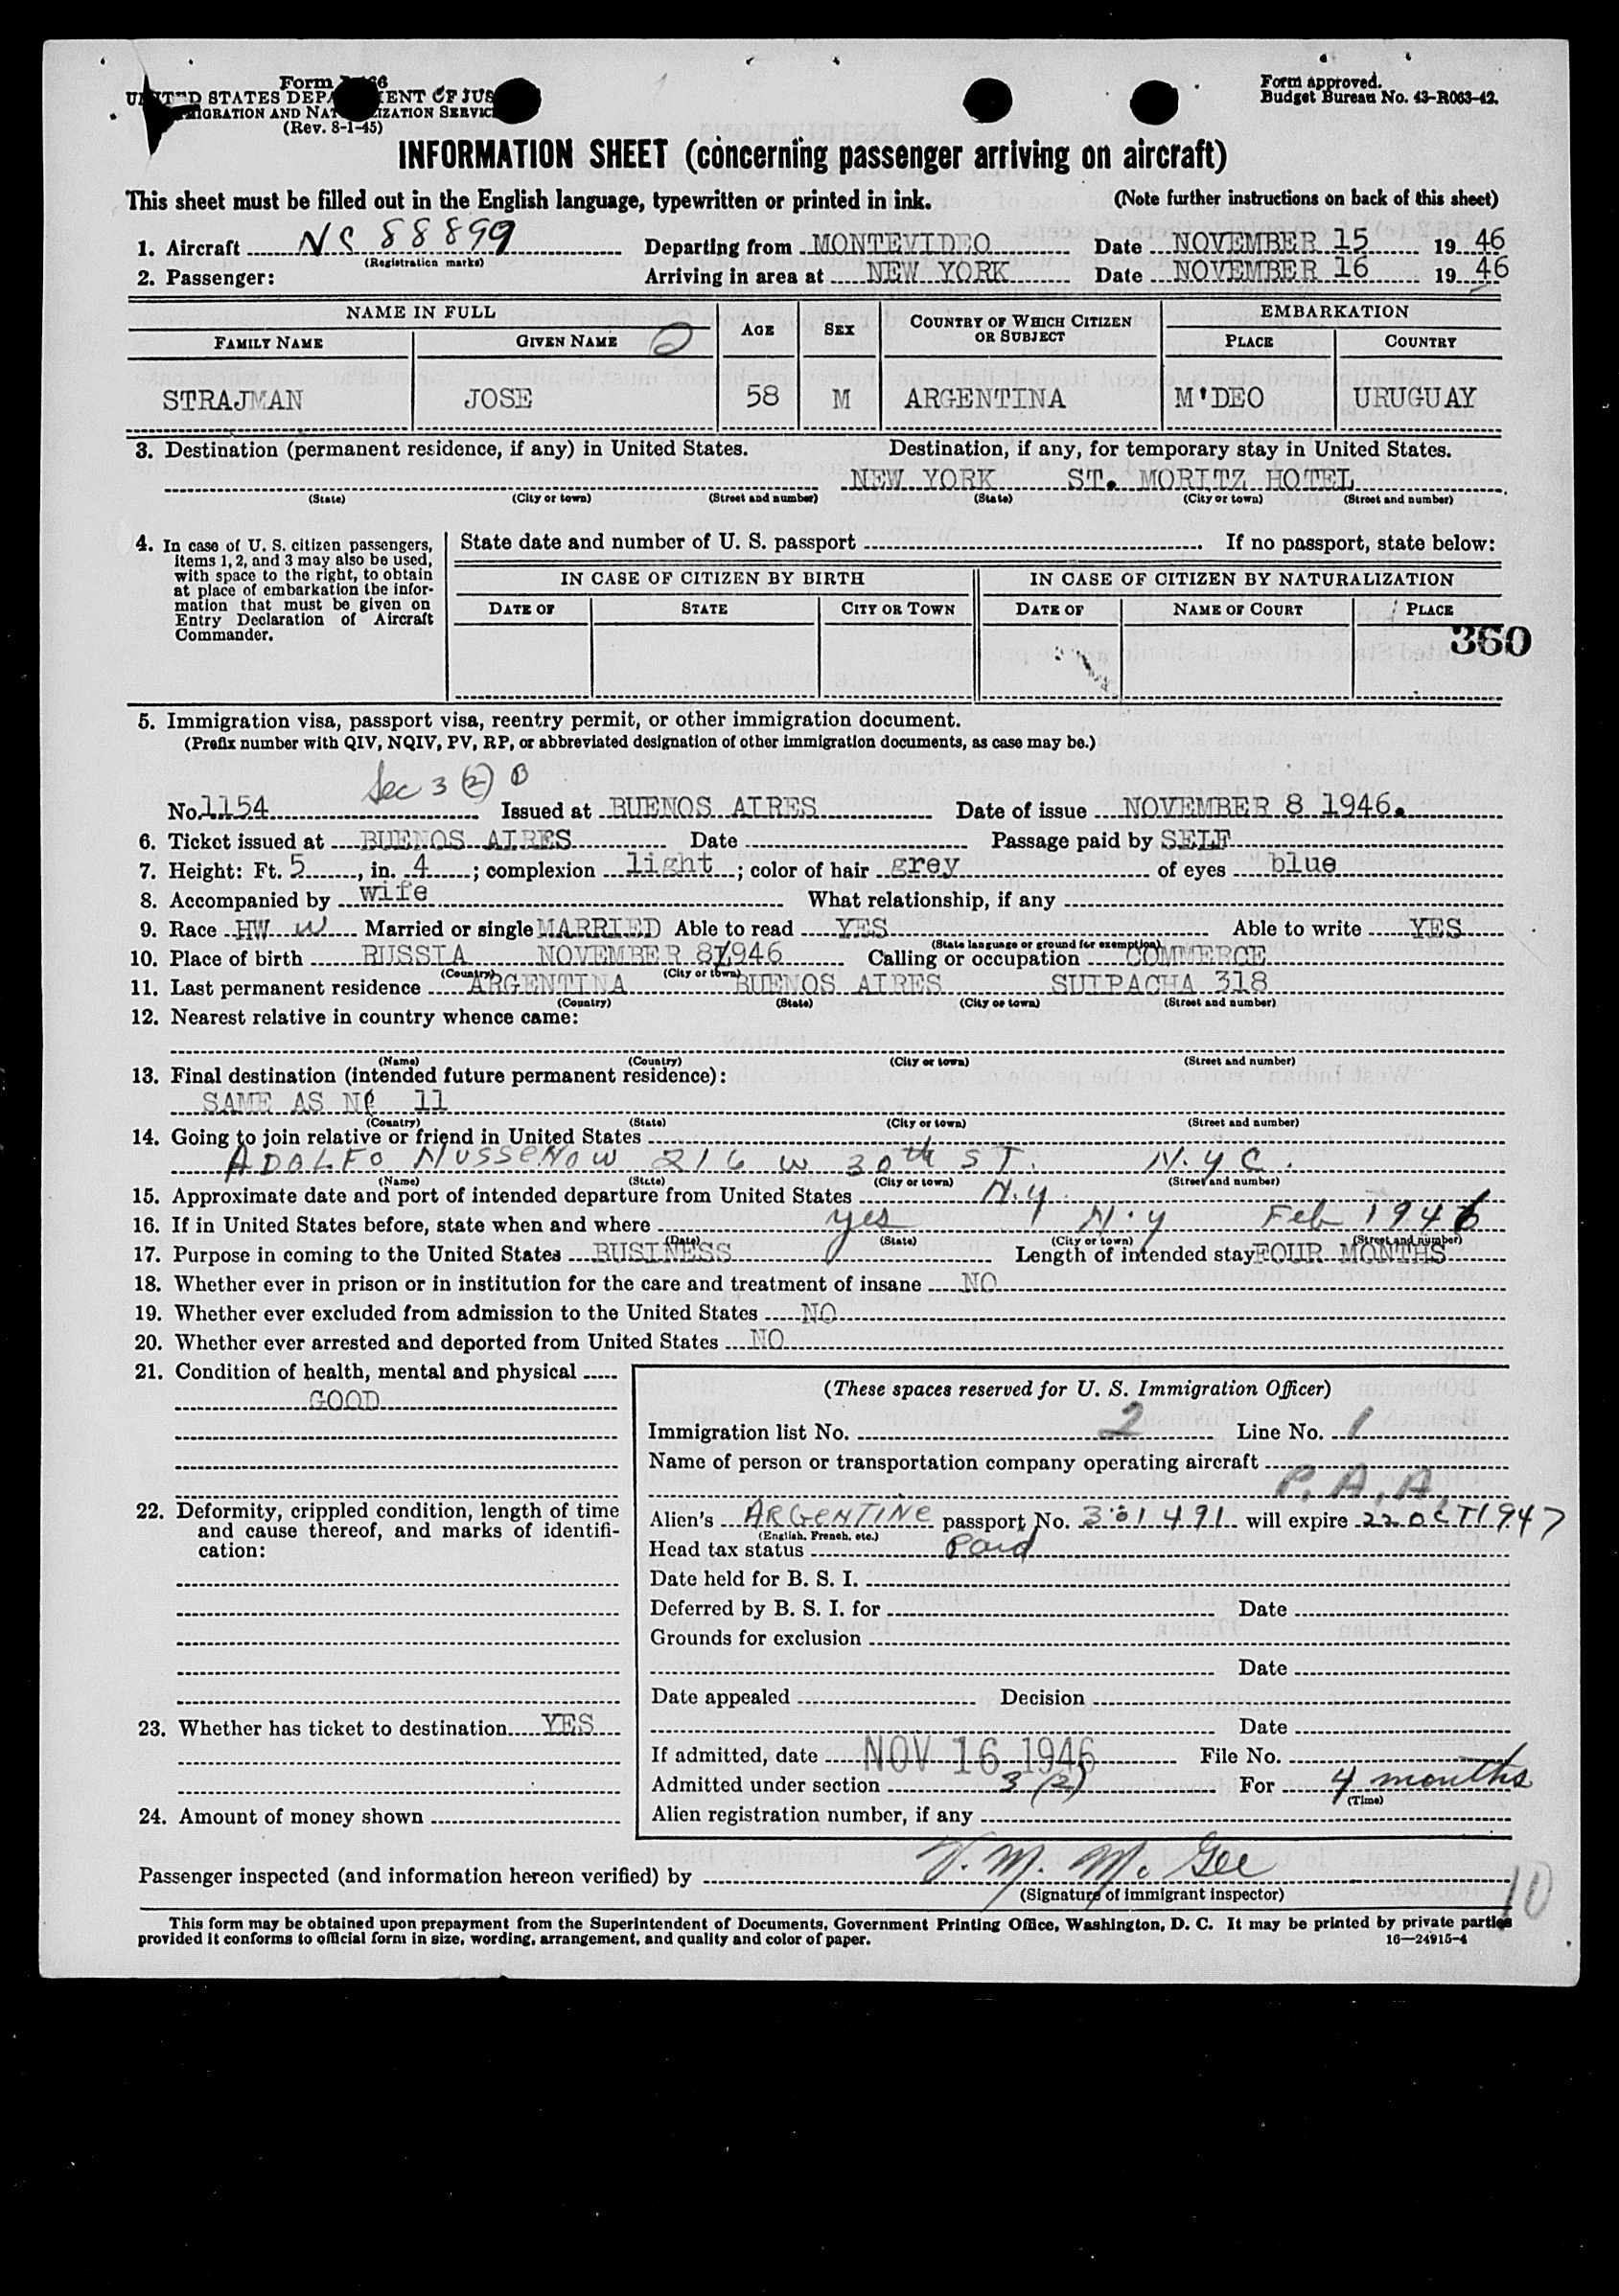 Form
UNITED STATES DEPARTMENT OF JUS
IMMIGRATION AND NATURALIZATION SERVIC
(Rev. 8-1-45)
Form approved.
Budget Bureau No. 43-R063-42.
INFORMATION SHEET (concerning passenger arriving on aircraft)
This sheet must be filled out in the English language, typewritten or printed in ink. (Note further instructions on back of this sheet)
1. Aircraft NC 88899 Departing from MONTEVIDEO Date NOVEMBER 15 19 46
(Registration marks)
2. Passenger: Arriving in area at NEW YORK Date NOVEMBER 16 19 46
NAME IN FULL AGE SEX COUNTRY OF WHICH CITIZEN OR SUBJECT EMBARKATION
FAMILY NAME GIVEN NAME PLACE COUNTRY
STRAJMAN JOSE 58 M ARGENTINA M'DEO URUGUAY
3. Destination (permanent residence, if any) in United States. Destination, if any, for temporary stay in United States.
NEW YORK ST. MORITZ HOTEL
(State) (City or town) (Street and number) (State) (City or town) (Street and number)
4. In case of U. S. citizen passengers, items 1, 2, and 3 may also be used, with space to the right, to obtain at place of embarkation the information that must be given on Entry Declaration of Aircraft Commander.
State date and number of U. S. passport If no passport, state below:
IN CASE OF CITIZEN BY BIRTH IN CASE OF CITIZEN BY NATURALIZATION
DATE OF STATE CITY OR TOWN DATE OF NAME OF COURT PLACE
360
5. Immigration visa, passport visa, reentry permit, or other immigration document.
(Prefix number with QIV, NQIV, PV, RP, or abbreviated designation of other immigration documents, as case may be.)
Sec 3 (2) B
No. 1154 Issued at BUENOS AIRES Date of issue NOVEMBER 8 1946.
6. Ticket issued at BUENOS AIRES Date Passage paid by SELF
7. Height: Ft. 5, in. 4; complexion light; color of hair grey of eyes blue
8. Accompanied by wife What relationship, if any
9. Race HW W Married or single MARRIED Able to read YES Able to write YES
(State language or ground for exemption)
10. Place of birth RUSSIA NOVEMBER 8 1946 Calling or occupation COMMERCE
(Country) (City or town)
11. Last permanent residence ARGENTINA BUENOS AIRES SUIPACHA 318
(Country) (State) (City or town) (Street and number)
12. Nearest relative in country whence came:
(Name) (Country) (City or town) (Street and number)
13. Final destination (intended future permanent residence):
SAME AS Nº 11
(Country) (State) (City or town) (Street and number)
14. Going to join relative or friend in United States
ADOLFO NUSSENOW 216 W 30th ST. N.Y C.
(Name) (State) (City or town) (Street and number)
15. Approximate date and port of intended departure from United States N.Y.
16. If in United States before, state when and where yes N.Y Feb 1946
(Date) (State) (City or town) (Street and number)
17. Purpose in coming to the United States BUSINESS Length of intended stay FOUR MONTHS
18. Whether ever in prison or in institution for the care and treatment of insane NO
19. Whether ever excluded from admission to the United States NO
20. Whether ever arrested and deported from United States NO
21. Condition of health, mental and physical
GOOD
22. Deformity, crippled condition, length of time and cause thereof, and marks of identification:
23. Whether has ticket to destination YES
24. Amount of money shown
(These spaces reserved for U. S. Immigration Officer)
Immigration list No. 2 Line No. 1
Name of person or transportation company operating aircraft
P.A.A.
Alien's ARGENTINE passport No. 301491 will expire 22 OCT 1947
(English, French, etc.)
Head tax status Paid
Date held for B. S. I.
Deferred by B. S. I. for Date
Grounds for exclusion
Date
Date appealed Decision
Date
If admitted, date NOV 16 1946 File No.
Admitted under section 3 (2) For 4 months
(Time)
Alien registration number, if any
Passenger inspected (and information hereon verified) by V. M. McGee
(Signature of immigrant inspector)
10
This form may be obtained upon prepayment from the Superintendent of Documents, Government Printing Office, Washington, D. C. It may be printed by private parties
provided it conforms to official form in size, wording, arrangement, and quality and color of paper. 16—24915-4